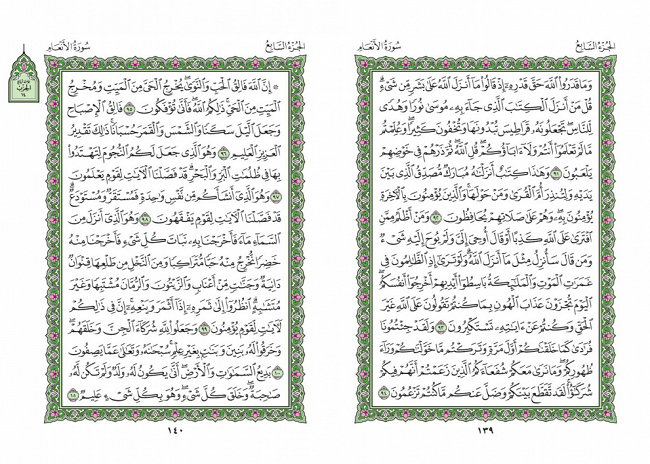 الجزء السابع
سورة الأنعام
وَمَا قَدَرُوا۟ ٱللَّهَ حَقَّ قَدْرِهِۦٓ إِذْ قَالُوا۟ مَآ أَنزَلَ ٱللَّهُ عَلَىٰ بَشَرٍ مِّن شَىْءٍ ۗ
قُلْ مَنْ أَنزَلَ ٱلْكِتَٰبَ ٱلَّذِى جَآءَ بِهِۦ مُوسَىٰ نُورًا وَهُدًى
لِّلنَّاسِ ۖ تَجْعَلُونَهُۥ قَرَاطِيسَ تُبْدُونَهَا وَتُخْفُونَ كَثِيرًا ۖ وَعُلِّمْتُم
مَّا لَمْ تَعْلَمُوٓا۟ أَنتُمْ وَلَآ ءَابَآؤُكُمْ ۖ قُلِ ٱللَّهُ ۖ ثُمَّ ذَرْهُمْ فِى خَوْضِهِمْ
يَلْعَبُونَ ٩١ وَهَٰذَا كِتَٰبٌ أَنزَلْنَٰهُ مُبَارَكٌ مُّصَدِّقُ ٱلَّذِى بَيْنَ
يَدَيْهِ وَلِتُنذِرَ أُمَّ ٱلْقُرَىٰ وَمَنْ حَوْلَهَا ۚ وَٱلَّذِينَ يُؤْمِنُونَ بِٱلْءَاخِرَةِ
يُؤْمِنُونَ بِهِۦ ۖ وَهُمْ عَلَىٰ صَلَاتِهِمْ يُحَافِظُونَ ٩٢ وَمَنْ أَظْلَمُ مِمَّنِ
ٱفْتَرَىٰ عَلَى ٱللَّهِ كَذِبًا أَوْ قَالَ أُوحِىَ إِلَىَّ وَلَمْ يُوحَ إِلَيْهِ شَىْءٌ
وَمَن قَالَ سَأُنزِلُ مِثْلَ مَآ أَنزَلَ ٱللَّهُ ۗ وَلَوْ تَرَىٰٓ إِذِ ٱلظَّٰلِمُونَ فِى
غَمَرَٰتِ ٱلْمَوْتِ وَٱلْمَلَٰٓئِكَةُ بَاسِطُوٓا۟ أَيْدِيهِمْ أَخْرِجُوٓا۟ أَنفُسَكُمُ ۖ
ٱلْيَوْمَ تُجْزَوْنَ عَذَابَ ٱلْهُونِ بِمَا كُنتُمْ تَقُولُونَ عَلَى ٱللَّهِ غَيْرَ
ٱلْحَقِّ وَكُنتُمْ عَنْ ءَايَٰتِهِۦ تَسْتَكْبِرُونَ ٩٣ وَلَقَدْ جِئْتُمُونَا
فُرَٰدَىٰ كَمَا خَلَقْنَٰكُمْ أَوَّلَ مَرَّةٍ وَتَرَكْتُم مَّا خَوَّلْنَٰكُمْ وَرَآءَ
ظُهُورِكُمْ ۖ وَمَا نَرَىٰ مَعَكُمْ شُفَعَآءَكُمُ ٱلَّذِينَ زَعَمْتُمْ أَنَّهُمْ فِيكُمْ
شُرَكَٰٓؤُا۟ ۚ لَقَد تَّقَطَّعَ بَيْنَكُمْ وَضَلَّ عَنكُم مَّا كُنتُمْ تَزْعُمُونَ ٩٤
١٣٩
الجزء السابع
سورة الأنعام
۞ إِنَّ ٱللَّهَ فَالِقُ ٱلْحَبِّ وَٱلنَّوَىٰ ۖ يُخْرِجُ ٱلْحَىَّ مِنَ ٱلْمَيِّتِ وَمُخْرِجُ
ٱلْمَيِّتِ مِنَ ٱلْحَىِّ ۚ ذَٰلِكُمُ ٱللَّهُ ۖ فَأَنَّىٰ تُؤْفَكُونَ ٩٥ فَالِقُ ٱلْإِصْبَاحِ
وَجَعَلَ ٱلَّيْلَ سَكَنًا وَٱلشَّمْسَ وَٱلْقَمَرَ حُسْبَانًا ۚ ذَٰلِكَ تَقْدِيرُ
ٱلْعَزِيزِ ٱلْعَلِيمِ ٩٦ وَهُوَ ٱلَّذِى جَعَلَ لَكُمُ ٱلنُّجُومَ لِتَهْتَدُوا۟
بِهَا فِى ظُلُمَٰتِ ٱلْبَرِّ وَٱلْبَحْرِ ۗ قَدْ فَصَّلْنَا ٱلْءَايَٰتِ لِقَوْمٍ يَعْلَمُونَ
٩٧ وَهُوَ ٱلَّذِىٓ أَنشَأَكُم مِّن نَّفْسٍ وَٰحِدَةٍ فَمُسْتَقَرٌّ وَمُسْتَوْدَعٌ ۗ
قَدْ فَصَّلْنَا ٱلْءَايَٰتِ لِقَوْمٍ يَفْقَهُونَ ٩٨ وَهُوَ ٱلَّذِىٓ أَنزَلَ مِنَ
ٱلسَّمَآءِ مَآءً فَأَخْرَجْنَا بِهِۦ نَبَاتَ كُلِّ شَىْءٍ فَأَخْرَجْنَا مِنْهُ
خَضِرًا نُّخْرِجُ مِنْهُ حَبًّا مُّتَرَاكِبًا وَمِنَ ٱلنَّخْلِ مِن طَلْعِهَا قِنْوَانٌ
دَانِيَةٌ وَجَنَّٰتٍ مِّنْ أَعْنَابٍ وَٱلزَّيْتُونَ وَٱلرُّمَّانَ مُشْتَبِهًا وَغَيْرَ
مُتَشَٰبِهٍ ۗ ٱنظُرُوٓا۟ إِلَىٰ ثَمَرِهِۦٓ إِذَآ أَثْمَرَ وَيَنْعِهِۦٓ ۚ إِنَّ فِى ذَٰلِكُمْ
لَءَايَٰتٍ لِّقَوْمٍ يُؤْمِنُونَ ٩٩ وَجَعَلُوا۟ لِلَّهِ شُرَكَآءَ ٱلْجِنَّ وَخَلَقَهُمْ ۖ
وَخَرَقُوا۟ لَهُۥ بَنِينَ وَبَنَٰتٍۭ بِغَيْرِ عِلْمٍ ۚ سُبْحَٰنَهُۥ وَتَعَٰلَىٰ عَمَّا يَصِفُونَ
١٠٠ بَدِيعُ ٱلسَّمَٰوَٰتِ وَٱلْأَرْضِ ۖ أَنَّىٰ يَكُونُ لَهُۥ وَلَدٌ وَلَمْ تَكُن لَّهُۥ
صَٰحِبَةٌ ۖ وَخَلَقَ كُلَّ شَىْءٍ ۖ وَهُوَ بِكُلِّ شَىْءٍ عَلِيمٌ ١٠١
١٤٠